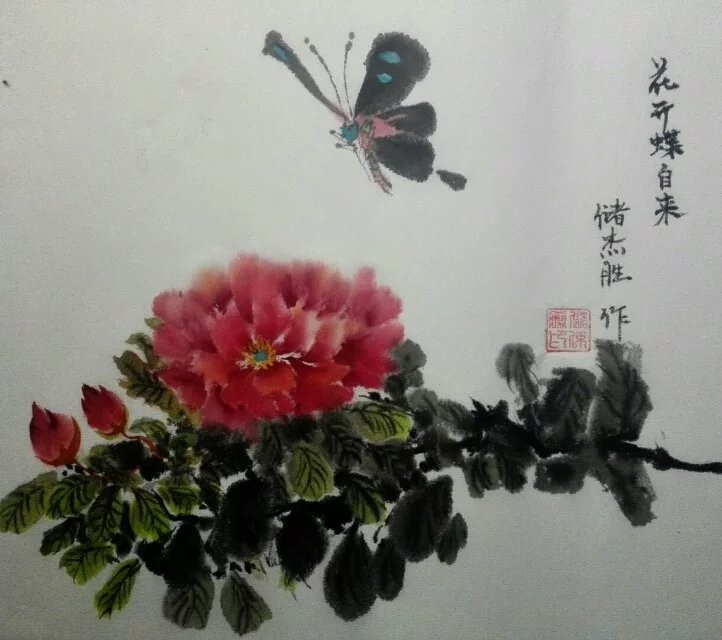 花开蝶自来
储杰胜 作